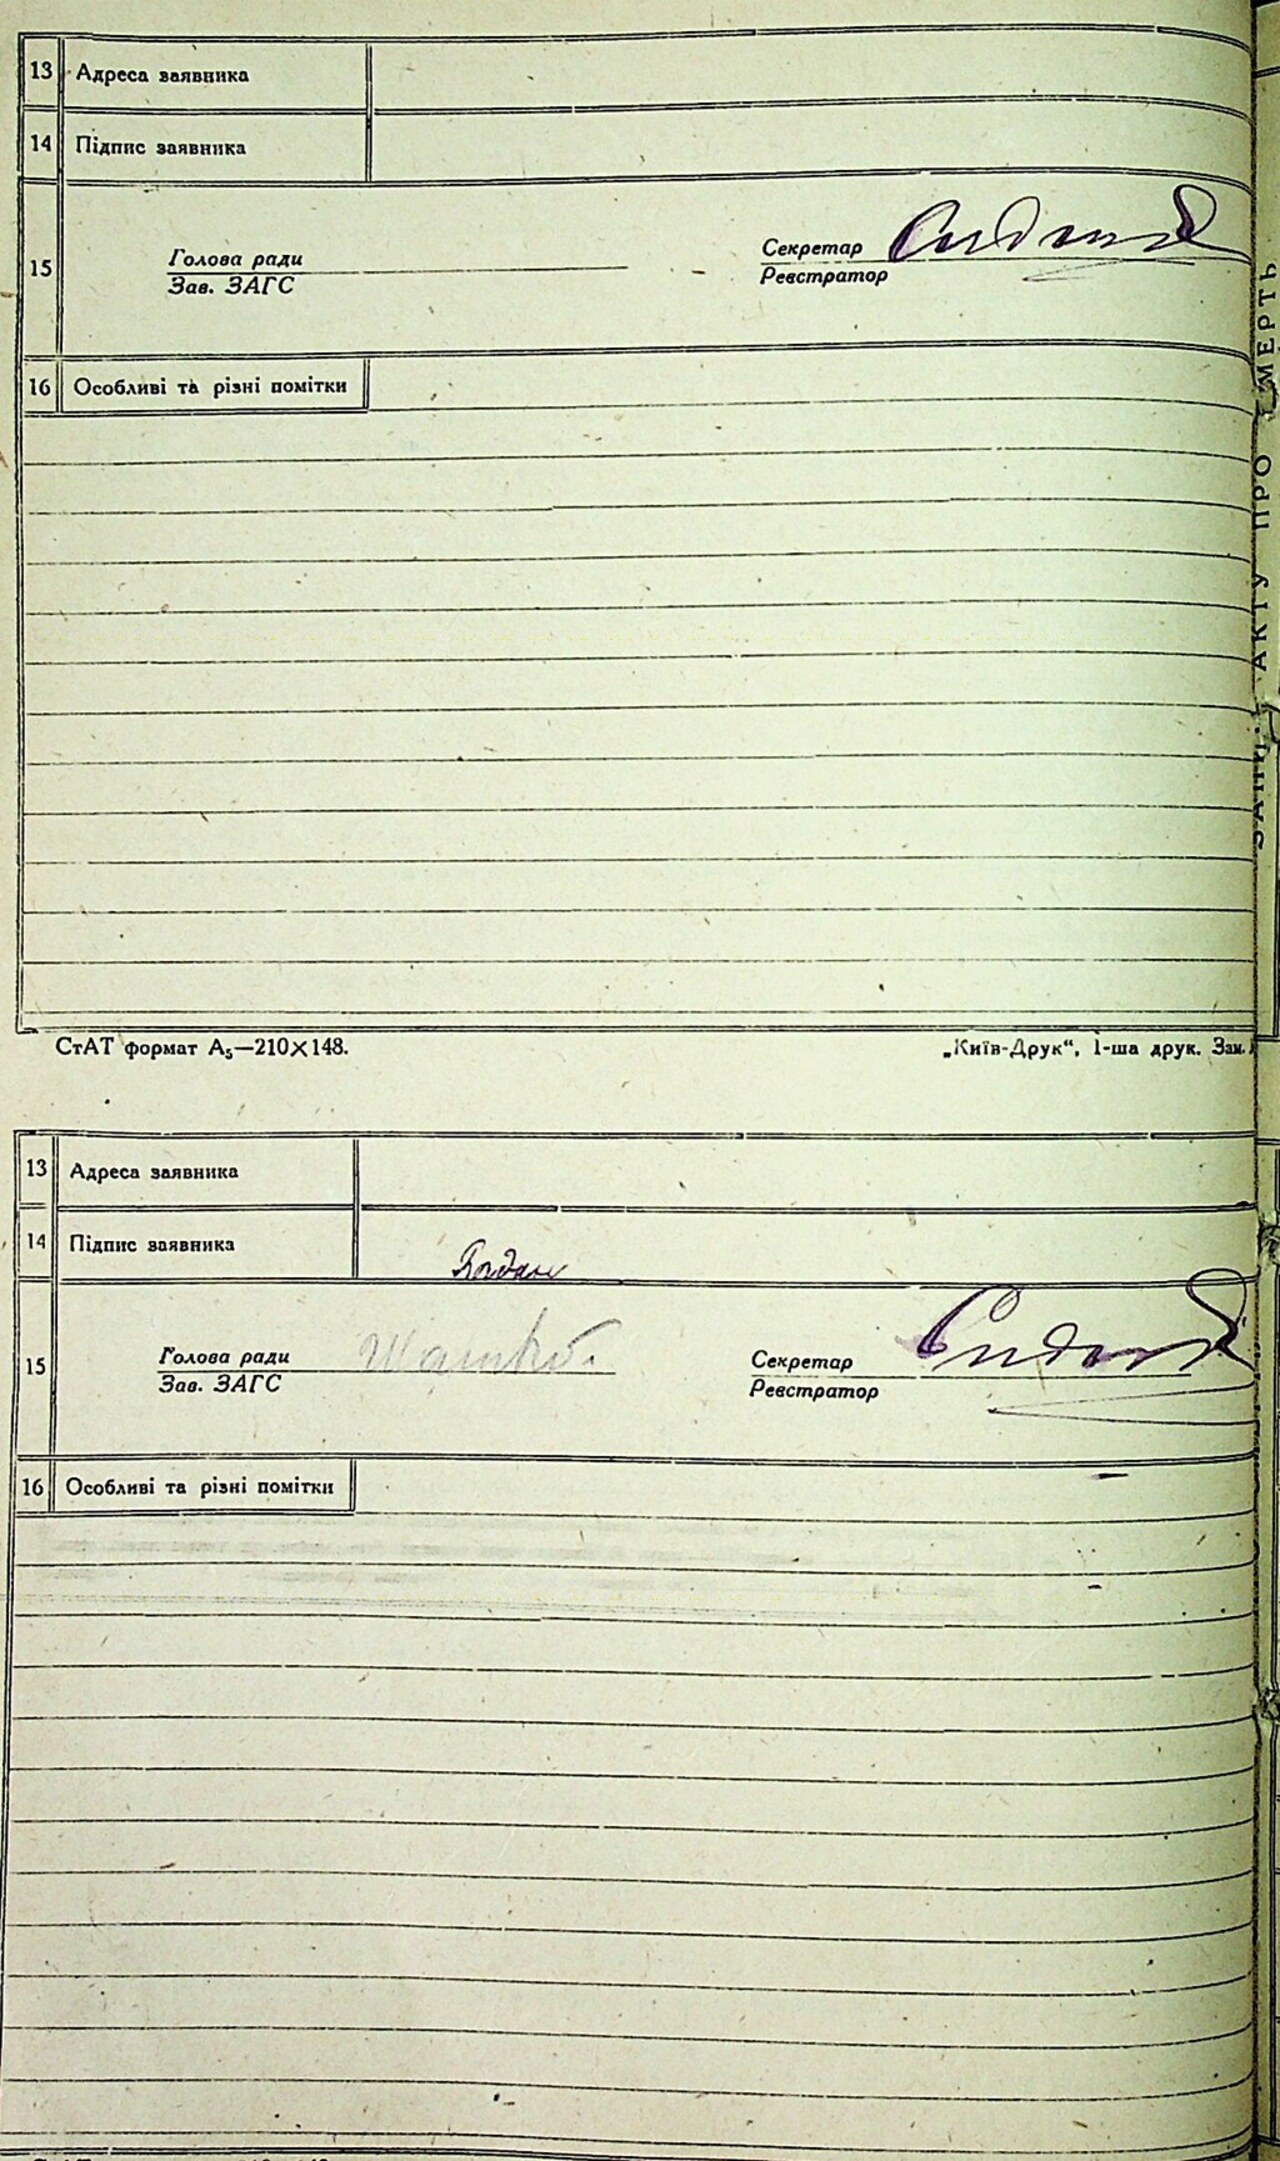 13 Адреса заявника
14 Підпис заявника
15 Голова ради
Зав. ЗАГС
Секретар
Реєстратор
16 Особливі та різні помітки
СтАТ формат А₅—210×148.
„Київ-Друк“, 1-ша друк. Зам.
13 Адреса заявника
14 Підпис заявника
15 Голова ради
Зав. ЗАГС
Секретар
Реєстратор
16 Особливі та різні помітки
АКТУ ПРО СМЕРТЬ